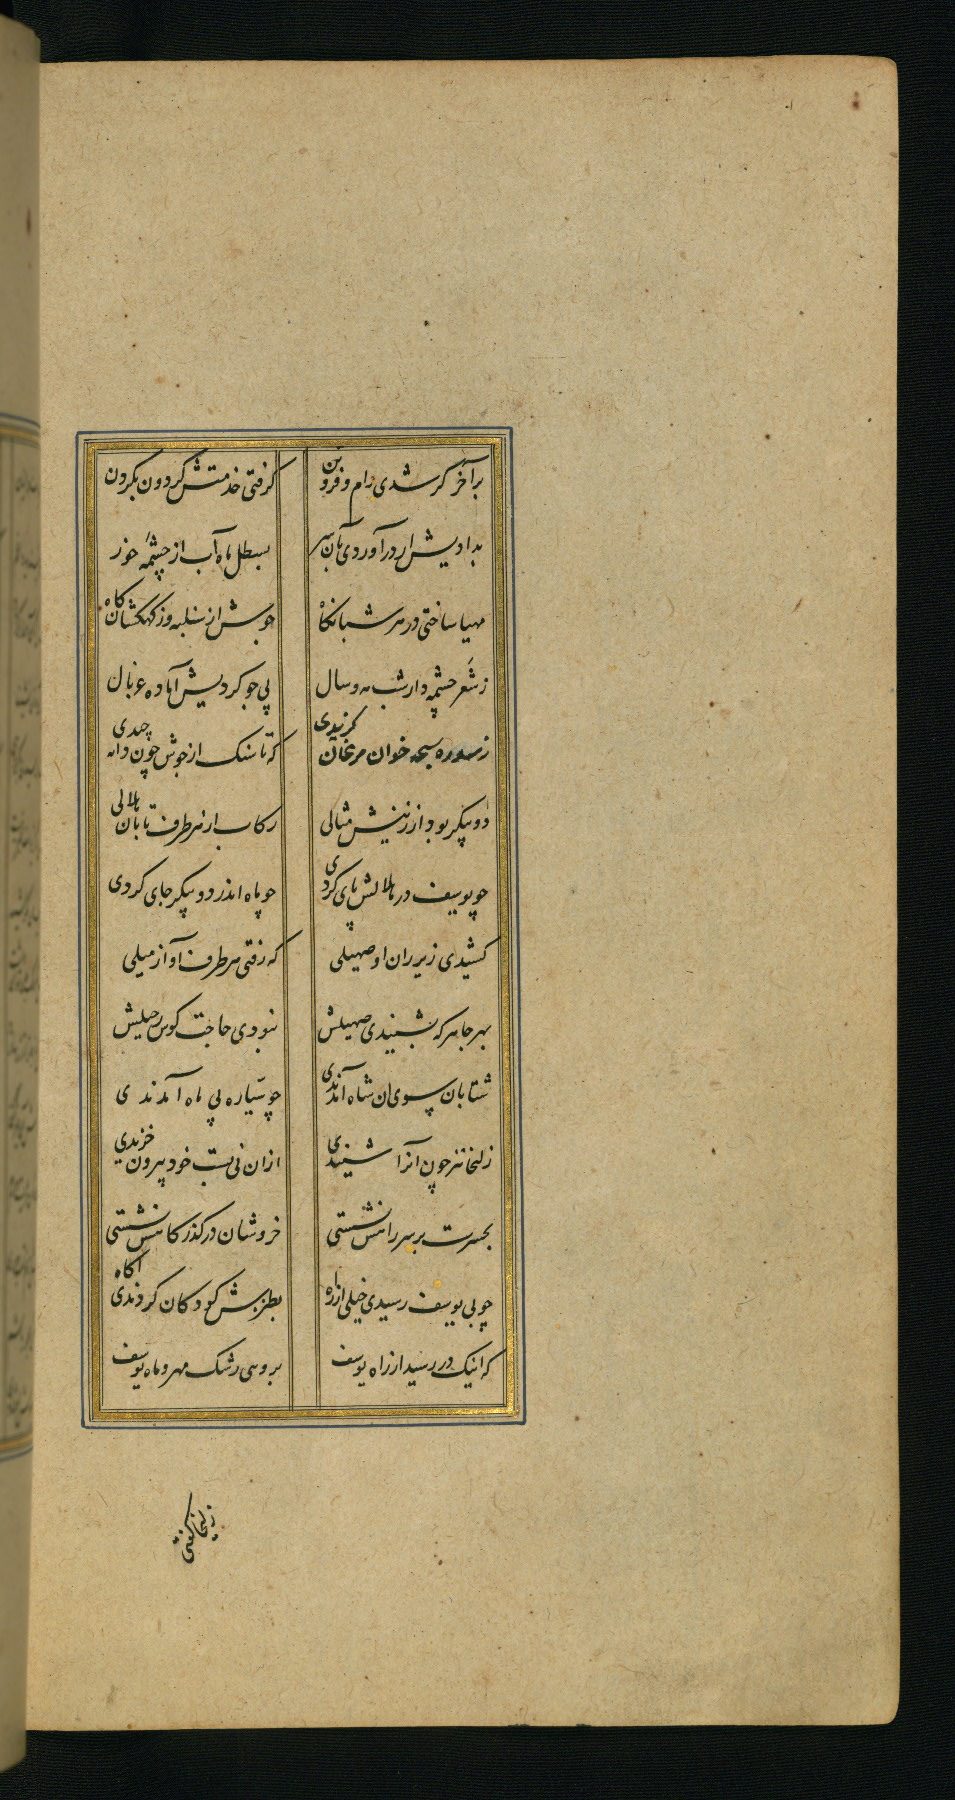 برآخر گر شدی رام و فروتن گرفتی خدمتش گردون بگردن
بدادیش ار درآوردی بآن سر بسطل ماه آب از چشمهٔ خور
مهیا ساختی در هر شبانگاه جوش از سنبله وز کهکشان کاه
ز شَعر چشمه دار شب مه و سال پی جو کردیش آماده غربال
ز سدره سبحه خوان مرغان گزیدی که تا سنک از جوش چون دانه چیدی
دو پیکر بود از زینش مثالی رکاب از هر طرف تابان هلالی
چو یوسف در هلالش پای کردی چو ماه اندر دو پیکر جای کردی
کشیدی زیر ران او صهیلی که رفتی هر طرف آواز میلی
بهر جا هر که بشنیدی صهیلش نبودی حاجت کوس رحیلش
شتابان سوی آن شاه آمدندی چو سیّاره پی ماه آمدندی
زلیخا نیز چون آنرا شنیدی ازان نی بست خود بیرون خزیدی
بحسرت بر سر راهش نشستی خروشان در گذرگاهش نشستی
چو بی یوسف رسیدی خیلی از راه بطنزش کودکان کردندی آگاه
که اینک در رسید از راه یوسف بروی رشک مهر و ماه یوسف
زلیخا گفتی